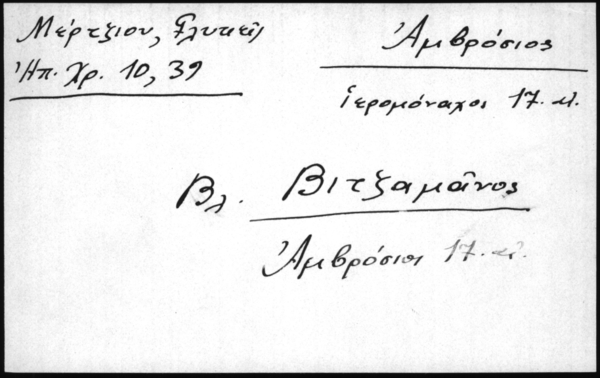 Μέρτζιου, Γλυκεῖς
Ἠπ. Χρ. 10, 39
Ἀμβρόσιος
ἱερομόναχος 17. αἰ.
Βλ. Βιτζαμᾶνος
Ἀμβρόσιος 17. αἰ.